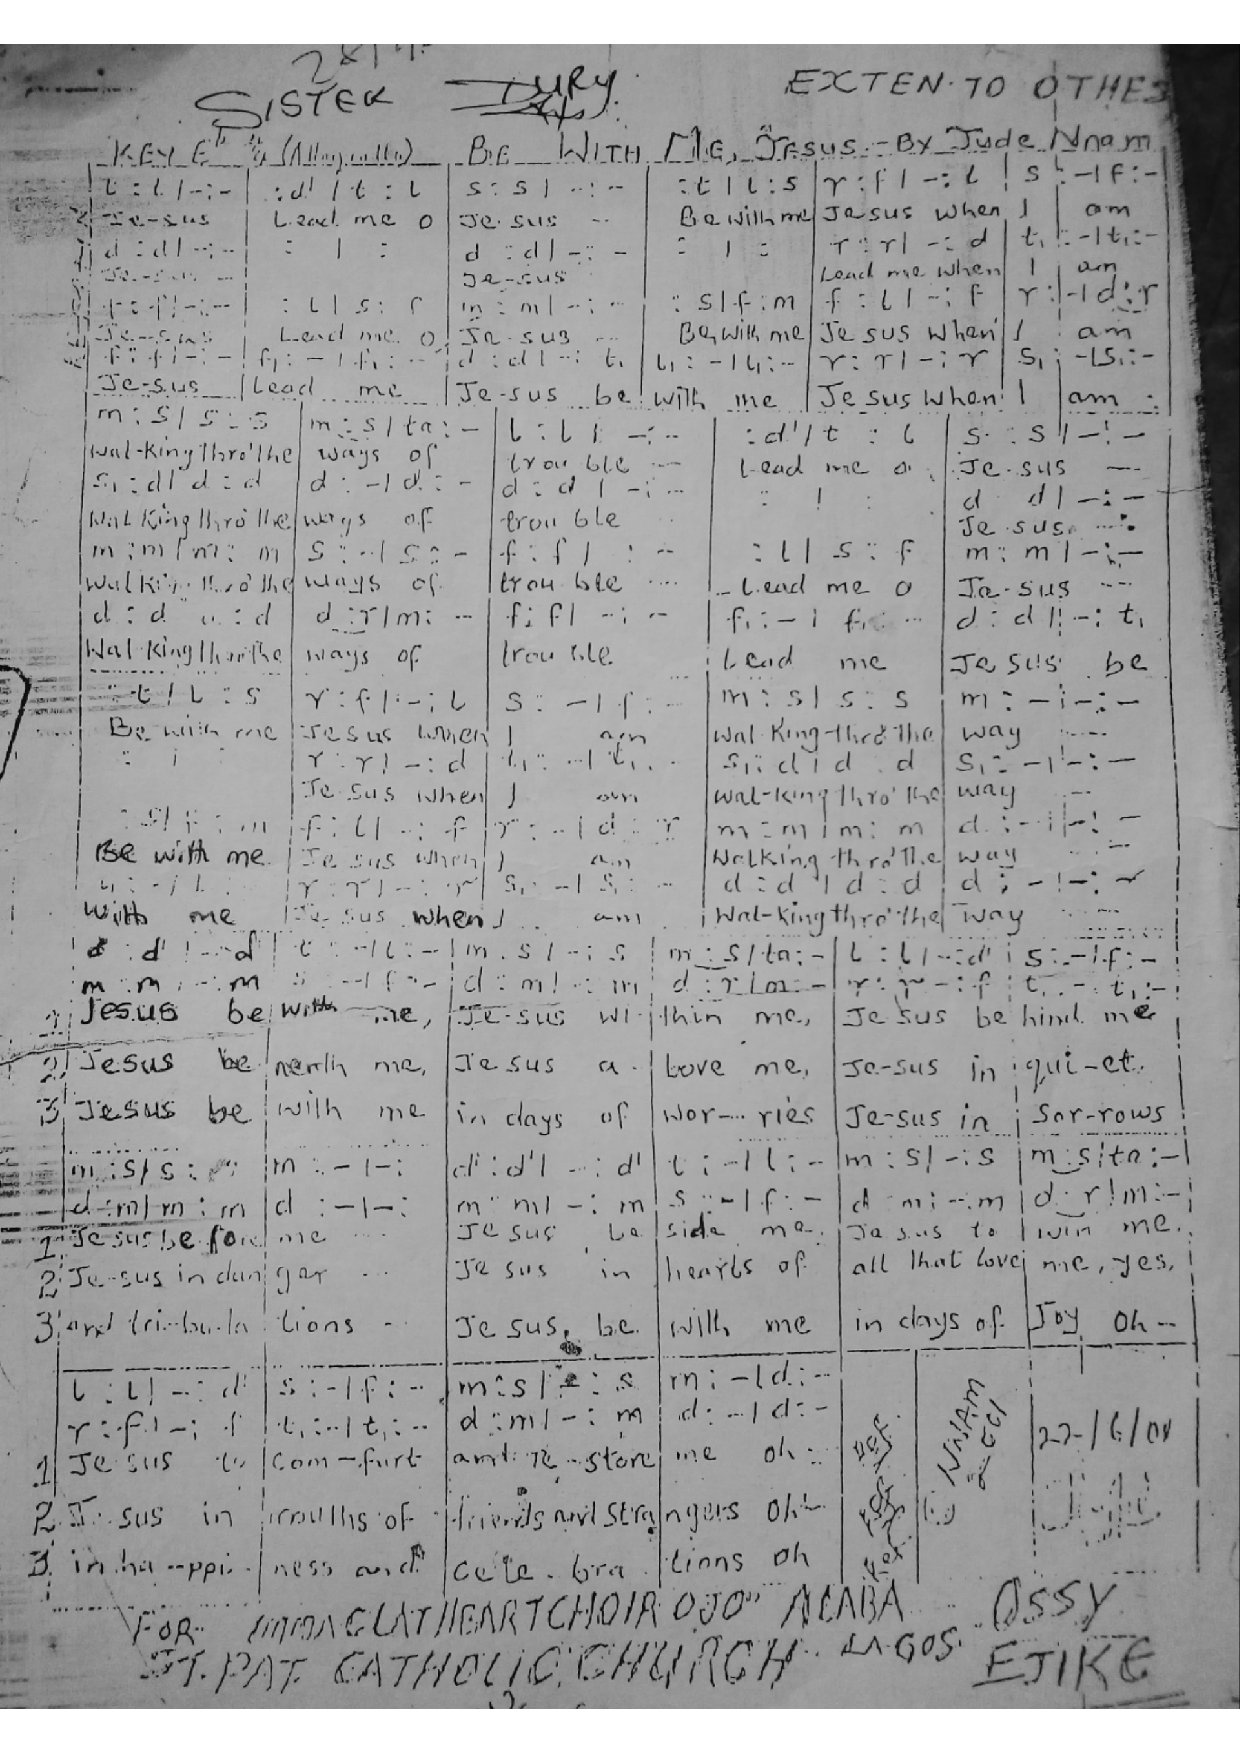 SISTER JURY.
EXTEN. TO OTHES
KEY E (Allegretto) BE WITH ME, JESUS - BY Jude Nnam
l : l | - : - : d' | t : l s : s | - : - : t | l : s r : f | - : l s : - | f : -
Je-sus Lead me o Je sus Be with me Jesus when I am
d : d | - : - : | : d : d | - : - : | : r : r | - : d t₁ : - | t₁ : -
Je-sus Je-sus Lead me when I am
f : f | - : - : l | s : f m : m | - : - : s | f : m f : l | - : f r : - | d : r
Je-sus Lead me o Je-sus Be with me Jesus when I am
f : f | - : - f₁ : - | f₁ : - d : d | - : t₁ l₁ : - | l₁ : - r : r | - : r s₁ : - | s₁ : -
Je-sus Lead me Je-sus be with me Jesus when I am
m : s | s : s m : s | ta : - l : l | - : - : d' | t : l s : s | - : -
Wal-king thro' the ways of trou ble Lead me o Je-sus
s₁ : d | d : d d : - | d : - d : d | - : - : | : d d | - : -
Wal king thro' the ways of trou ble Je sus
m : m | m : m s : - | s : - f : f | : - : l | s : f m : m | - : -
Wal king thro' the ways of trou ble Lead me o Je-sus
d : d : d d : r | m : - f : f | - : - f₁ : - | f₁ : - d : d | - : t₁
Wal-king thro' the ways of trou ble Lead me Je sus be
: t | l : s r : f | - : l s : - | f : - m : s | s : s m : - | - : -
Be with me Jesus when I am Wal-king-thro' the way
: | r : r | - : d t₁ : - | t₁ : - s₁ : d | d : d s₁ : - | - : -
Je-sus when I am Wal-king thro' the way
: s | f : m f : l | - : f r : - | d : r m : m | m : m d : - | - : -
Be with me Je sus when I am Walking thro' the way
l₁ : - | l₁ : r : r | - : r s₁ : - | s₁ : - d : d | d : d d : - | - : -
With me Je-sus when I am Wal-king thro' the way
d' : d' | - : d' t : - | l : - m : s | - : s m : s | ta : - l : l | - : d' s : - | f : -
m : m | - : m s : - | f : - d : m | - : m d : r | m : - r : r | - : f t₁ : - | t₁ : -
1 Jesus be with me, Je-sus wi thin me, Je sus be hind me
2 Jesus be neath me, Je sus a bove me, Je-sus in qui-et.
3 Jesus be with me in days of wor-ries Je-sus in Sor-rows
m : s | s : s m : - | - : d' : d' | - : d' t : - | l : - m : s | - : s m : s | ta : -
d : m | m : m d : - | - : m : m | - : m s : - | f : - d : m | - : m d : r | m : -
1 Je sus be fore me Je sus be side me, Je sus to win me.
2 Je-sus in dan ger Je sus in hearts of all that love me, yes,
3 and tri-bu-la tions Je sus, be with me in days of Joy Oh -
l : l | - : d' s : - | f : - m : s | - : s m : - | d : -
r : f | - : f t₁ : - | t₁ : - d : m | - : m d : - | d : -
1 Je sus to com-fort and re-store me oh
2 Je sus in mouths of friends and stra ngers oh
3 in ha-ppi- ness and cele-bra tions oh
NNAM
22/6/04
FOR IMMACLATHEARTCHOIR OJO" ALABA
ST. PAT CATHOLIC CHURCH LAGOS.
OSSY
EJIKE